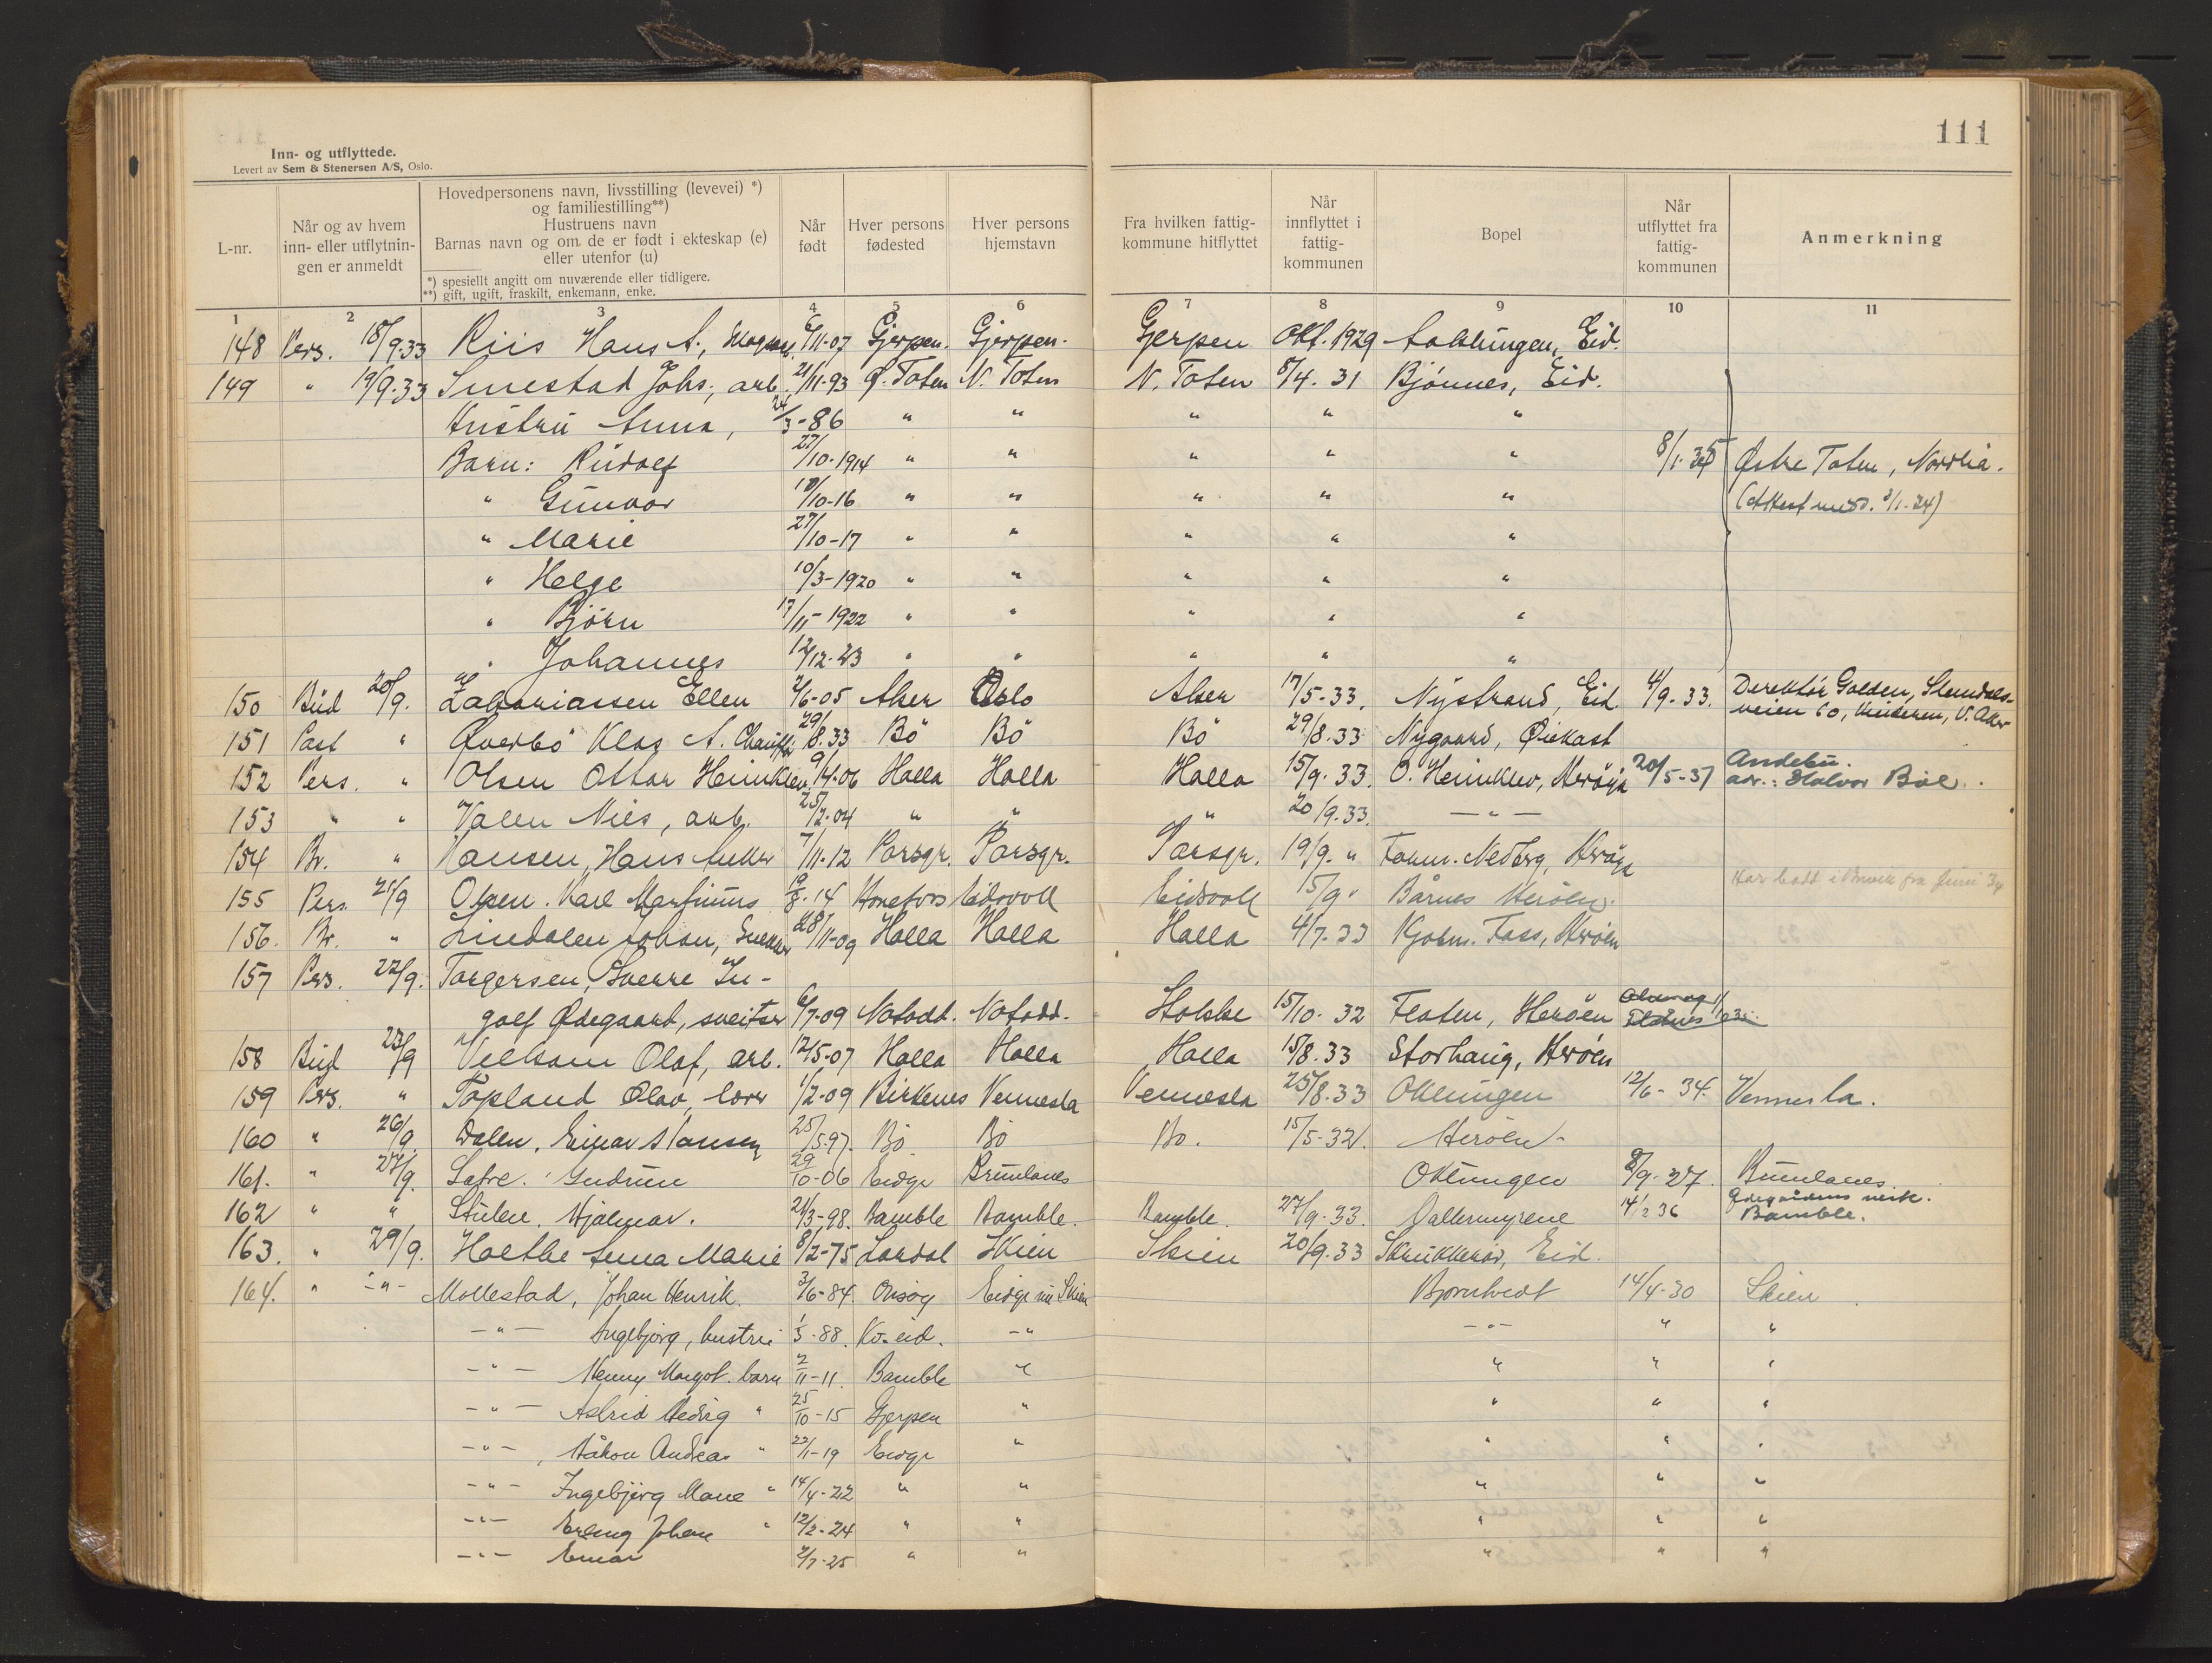 111
Inn- og utflyttede.
Levert av Sem & Stenersen A/S, Oslo.
L-nr.
Når og av hvem inn- eller utflytnin- gen er anmeldt
Hovedpersonens navn, livsstilling (levevei) *)
og familiestilling**)
Hustruens navn
Barnas navn og om de er født i ekteskap (e)
eller utenfor (u)
*) spesiellt angitt om nuværende eller tidligere.
**) gift, ugift, fraskilt, enkemann, enke.
Når født
Hver persons fødested
Hver persons hjemstavn
Fra hvilken fattig- kommune hitflyttet
Når innflyttet i fattig- kommunen
Bopel
Når utflyttet fra fattig- kommunen
Anmerkning
1 2 3 4 5 6 7 8 9 10 11
148 Pers. 18/9.33 Riis Hans A., 6/11-07 Gjerpen. Gjerpen. Gjerpen Okt. 1929 Eid.
149 " 19/9.33 Smestad Johs., arb. 21/11-93 Ø. Toten N. Toten N. Toten 8/4. 31 Bjønnes, Eid.
Hustru Anna, 24/3-86 " " " " "
Barn: Rudolf 27/10-1914 " " " " " 8/1- Østre Toten, Nordlia.
" Gunvor 18/10-16 " " " " " (Attest 3/1-34)
" Marie 27/10-17 " " " " "
" Helge 10/3-1920 " " " " "
" Bjørn 17/11-1922 " " " " "
" Johannes 12/12-23 " " " " "
150 Bud 20/9. Zakariassen Ellen 2/6-05 Aker Oslo Aker 17/5-33. Nystrand, Eid. 4/9-33. Direktør Golden, Slemdals-
veien 60, Vinderen, V. Aker
151 Post " Øverbö Klas A. Chauffør 29/8.33 Bö Bö Bö 29/8.33 Nygaard, Øiekast
152 Pers. " Olsen Ottar Heimklev 9/4-06 Holla Holla Holla 15/9.33. O. Heimklev, Herøya 20/5-37 Andebu.
adr.: Halvor Bøe.
153 " " Valen Nils, arb. 25/2-04 " " " 20/9.33. — " —
154 Br. " Hansen, Hans Anker 7/11-12 Porsgr. Porsgr. Porsgr. 19/9. " Nedbrg, Herøya
155 Pers. 21/9 Olsen. Karl Martinius 19/8-14 Hønefoss Eidsvoll Eidsvoll 15/9 " Bårnes Herøen. Har bodd i Brevik fra Juni 34
156. Br. " Lindalen Johan, Snekker 28/11-09 Holla Holla Holla 4/7-33 Foss, Herøen
157 Pers. 22/9. Torgersen, Sverre In-
golf Ødegaard, sveitser 6/7-09 Notodd. Notodd. 15/10-32 Floten, Herøen
158 Bud 23/9 Olaf, arb. 12/5-07 Holla Holla Holla 15/8.33 Storhaug, Herøen
159 Pers. " Topland Olav, lærer 1/2-09 Birkenes Vennesla Vennesla 25/8.33 Oklungen 12/6-34. Vennesla.
160 " 26/9. Dalen, Einar Hansen 25/5-97. Bö Bö Bö. 15/5-32. Herøen
161. " 27/9. Gudrun 29/10-06 Eidgr Brunlanes Oklungen 8/9-27. Brunlanes.
162 " " Stulen, Hjalmar. 21/3-98. Bamble Bamble. Bamble. 27/9-33. Vallermyrene 14/2 36 Ødegårdens verk.
Bamble.
163. " 29/9. Holthe Anna Marie 8/2-75 Lardal Skien Skien 20/9.33 Skrukkerød, Eid.
164. " -"- Mollestad, Johan Henrik. 3/6-84. Onsøy Eidgr nu Skien Bjørntvedt 14/4-30 Skien
— " — Ingebjørg, hustru 1/5-88. Kr.eid. - " — " — " "
— " — Henny Margot. barn 2/11-11. Bamble " " " "
— " — Astrid Hedvig " 25/10-15 Gjerpen " " " "
— " — Håkon Andreas " 22/1-19 Eidgr " " " "
— " — Ingebjørg Marie " 14/4-22 " " " " "
— " — Erling Johan " 12/2-24 " " " " "
— " — Einar 2/7-25 " " " " "